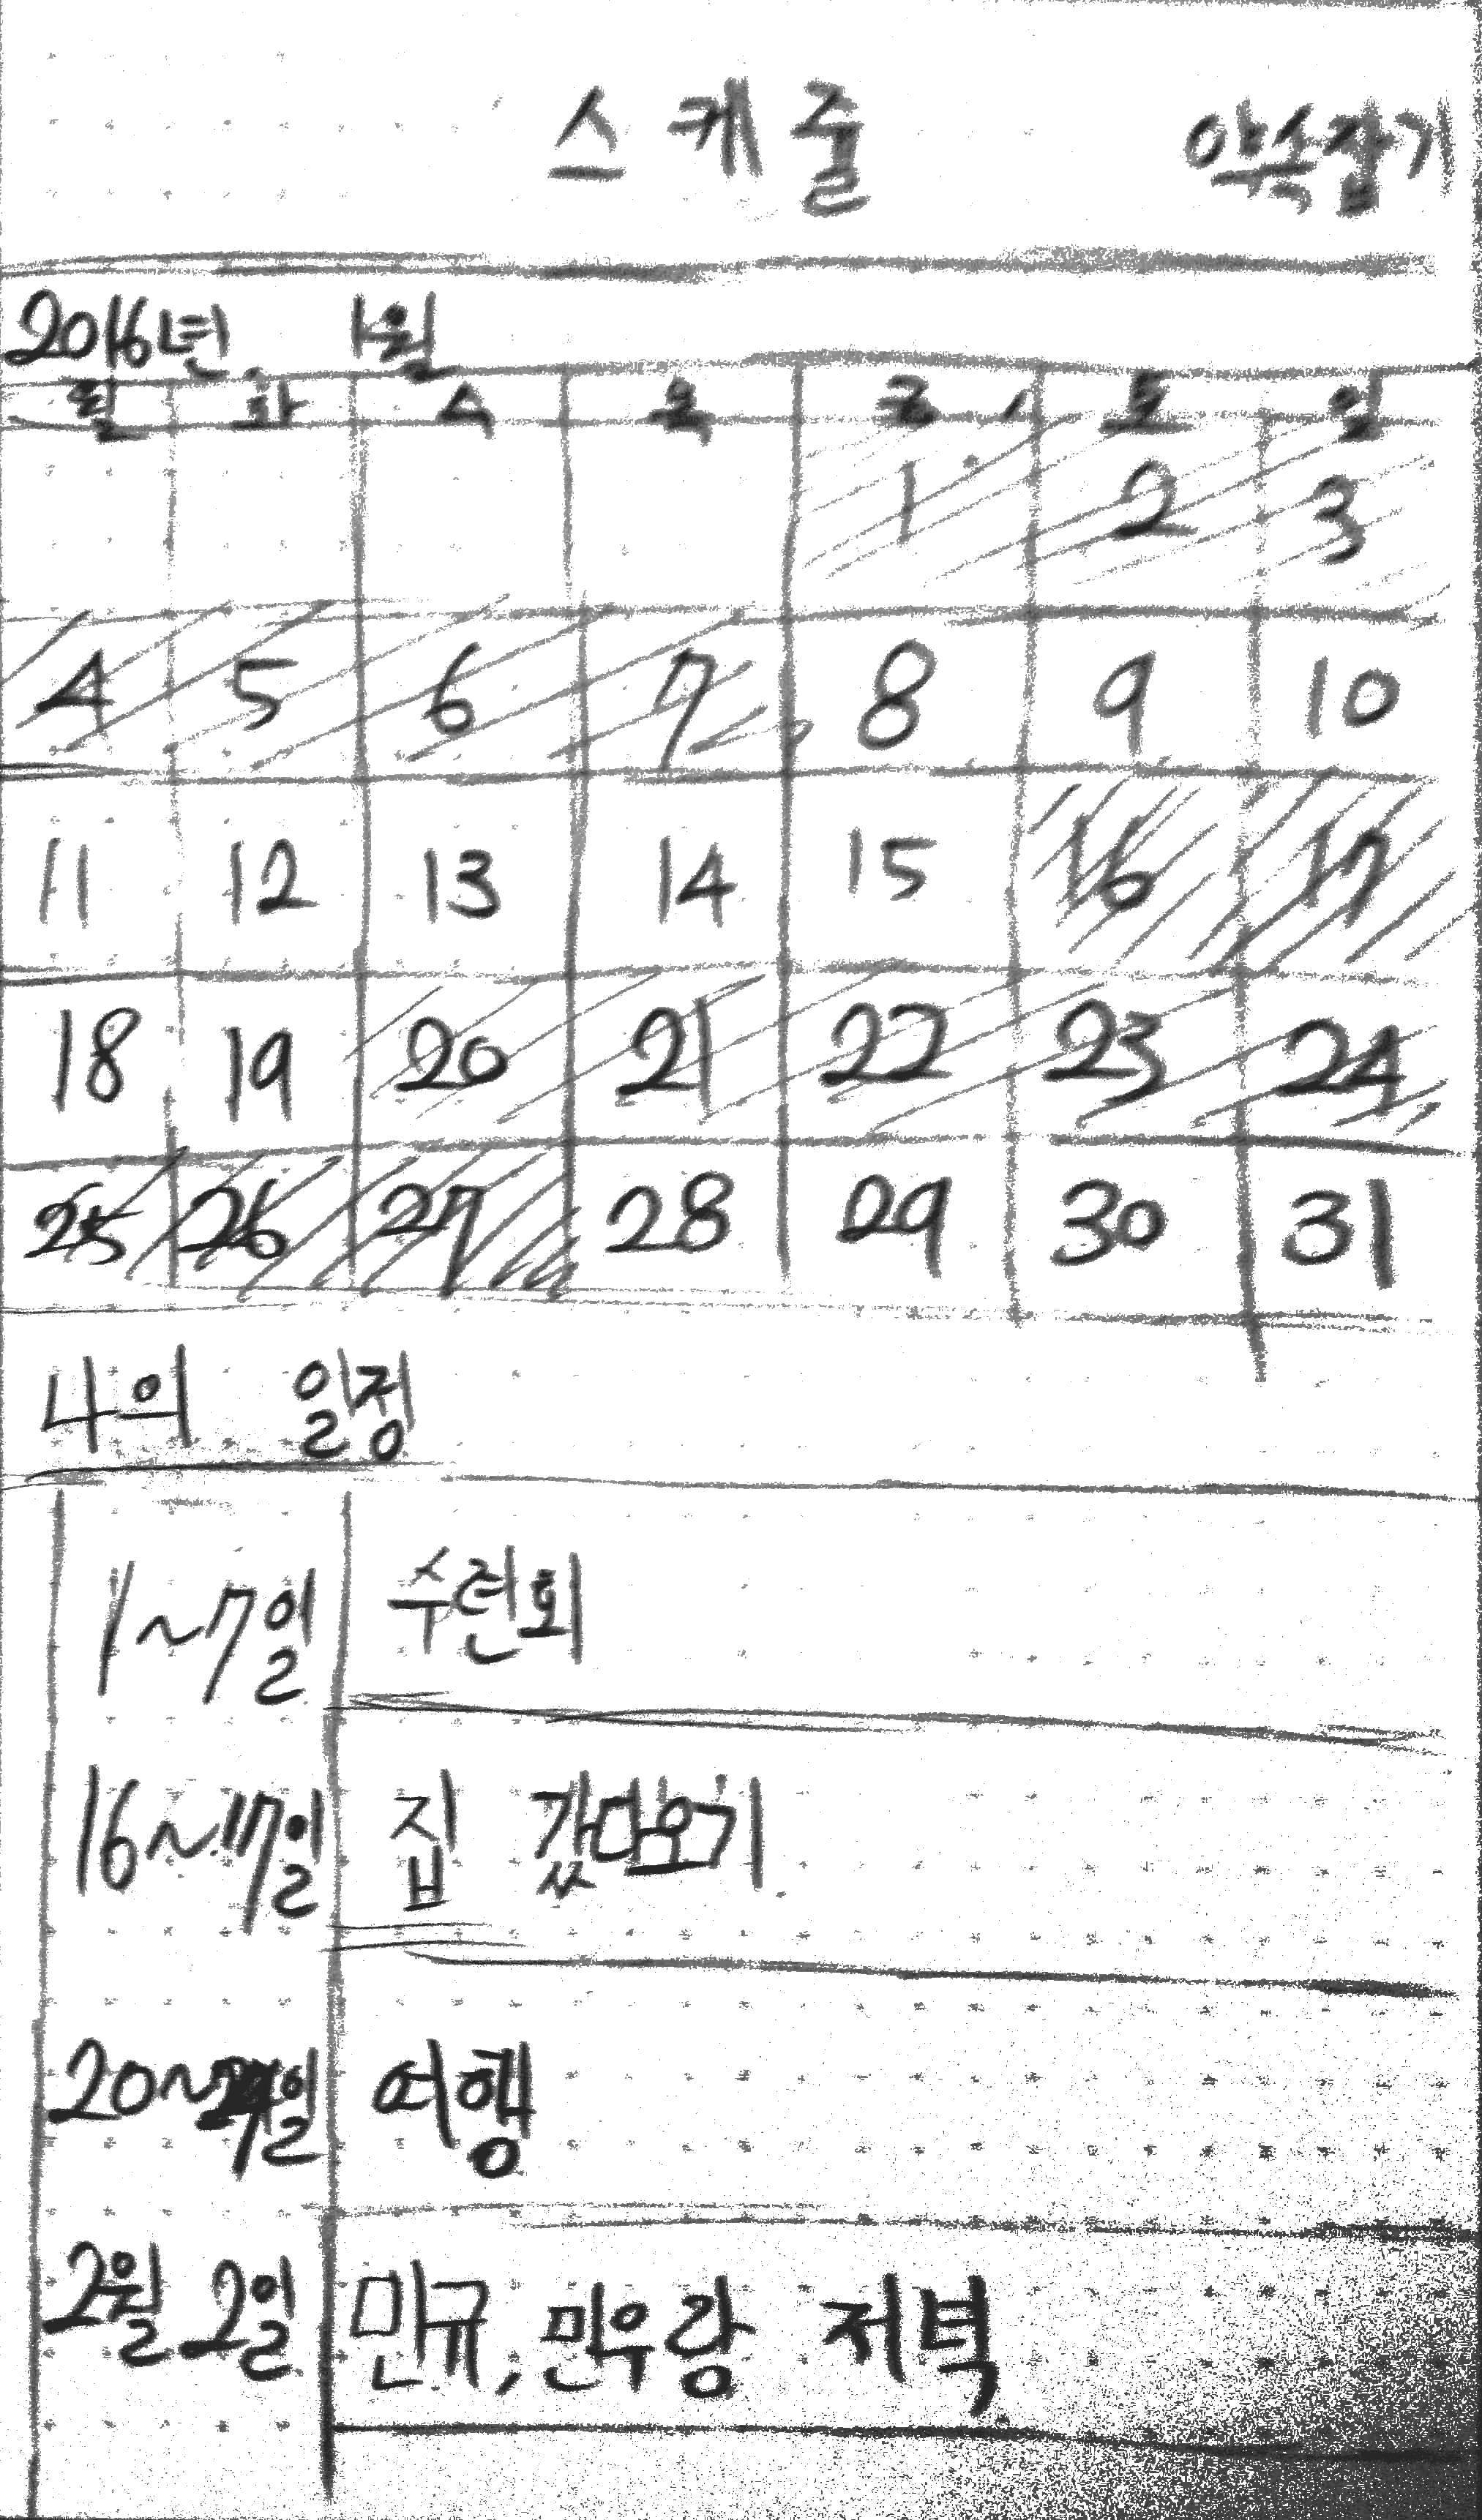 스케줄 약속잡기
2016년. 1월
월 화 수 목 금 토 일
1 2 3
4 5 6 7 8 9 10
11 12 13 14 15 16 17
18 19 20 21 22 23 24
25 26 27 28 29 30 31
나의 일정
1~7일 수련회
16~17일 집 갔다오기
20~27일 여행
2월 2일 민규, 민우랑 저녁